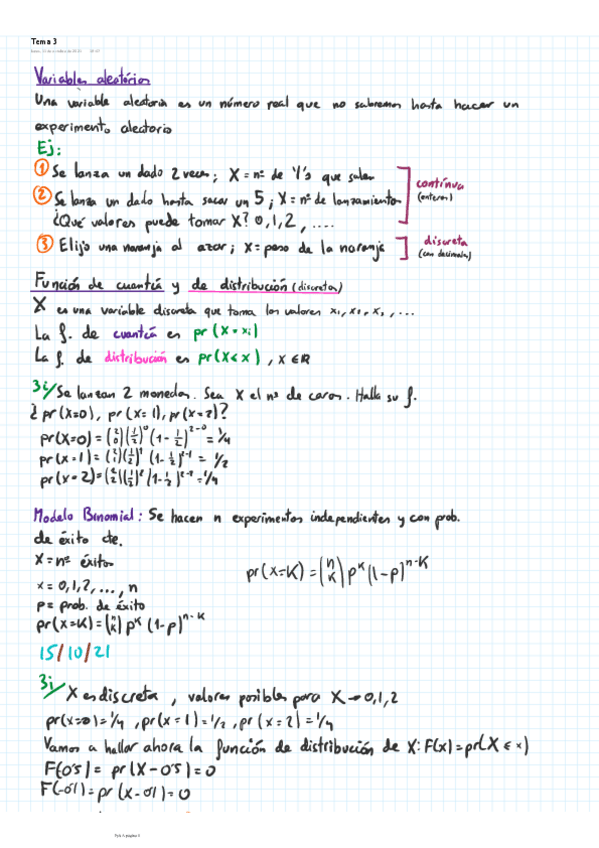 Tema 3
Variables aleatorias
Una variable aleatoria es un número real que no sabremos hasta hacer un
experimento aleatorio
Ej:
① Se lanza un dado 2 veces; X = nº de "1's" que salen
② Se lanza un dado hasta sacar un 5; X = nº de lanzamientos
¿Qué valores puede tomar X? 0,1,2, ....
continua
(enteros)
③ Elijo una naranja al azar; X = peso de la naranja
discreta
(con decimales)
Función de cuantía y de distribución (discretas)
X es una variable discreta que toma los valores x₁, x₂, x₃, ...
La f. de cuantía es pr(X=xᵢ)
La f. de distribución es pr(X≤x), x∈ℝ
3i/ Se lanzan 2 monedas. Sea X el nº de caras. Halla su f.
¿pr(X=0), pr(X=1), pr(X=2)?
pr(X=0) = (2 0)(1/2)^0 (1-1/2)^2-0 = 1/4
pr(X=1) = (2 1)(1/2)^1 (1-1/2)^2-1 = 1/2
pr(X=2) = (2 2)(1/2)^2 (1-1/2)^2-2 = 1/4
Modelo Binomial: Se hacen n experimentos independientes y con prob.
de éxito cte.
X = nº éxitos
x = 0,1,2,...,n
p = prob. de éxito
pr(X=K) = (n K) p^K (1-p)^n-K
pr(X=K) = (n K) p^K (1-p)^n-K
15/10/21
3i/ X es discreta, valores posibles para X → 0,1,2
pr(X=0)=1/4, pr(X=1)=1/2, pr(X=2)=1/4
Vamos a hallar ahora la función de distribución de X: F(x)=pr(X≤x)
F(0'5) = pr(X-0'5)=0
F(-01) = pr(X-01)=0